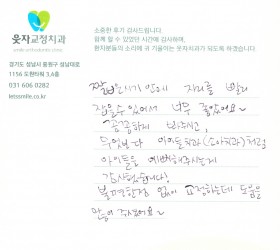 웃자교정치과
경기도 성남시 중원구 성남대로
1156 도원타워 3,4층
031 606 0282
letssmile.co.kr
소중한 후기 감사드립니다.
함께 할 수 있었던 시간에 감사하며,
환자분들의 소리에 귀 기울이는 웃자치과가 되도록 하겠습니다
짧은시간 안에 자리를 빨리
잡을수 있어서 너무 좋았어요~
꼼꼼하게 봐주시고,
무엇보다 어린이치과(소아치과)처럼
아이들을 예뻐해주시는게
감사했습니다!
불편한점 없이 교정하는데 도움을
많이 주셨어요~